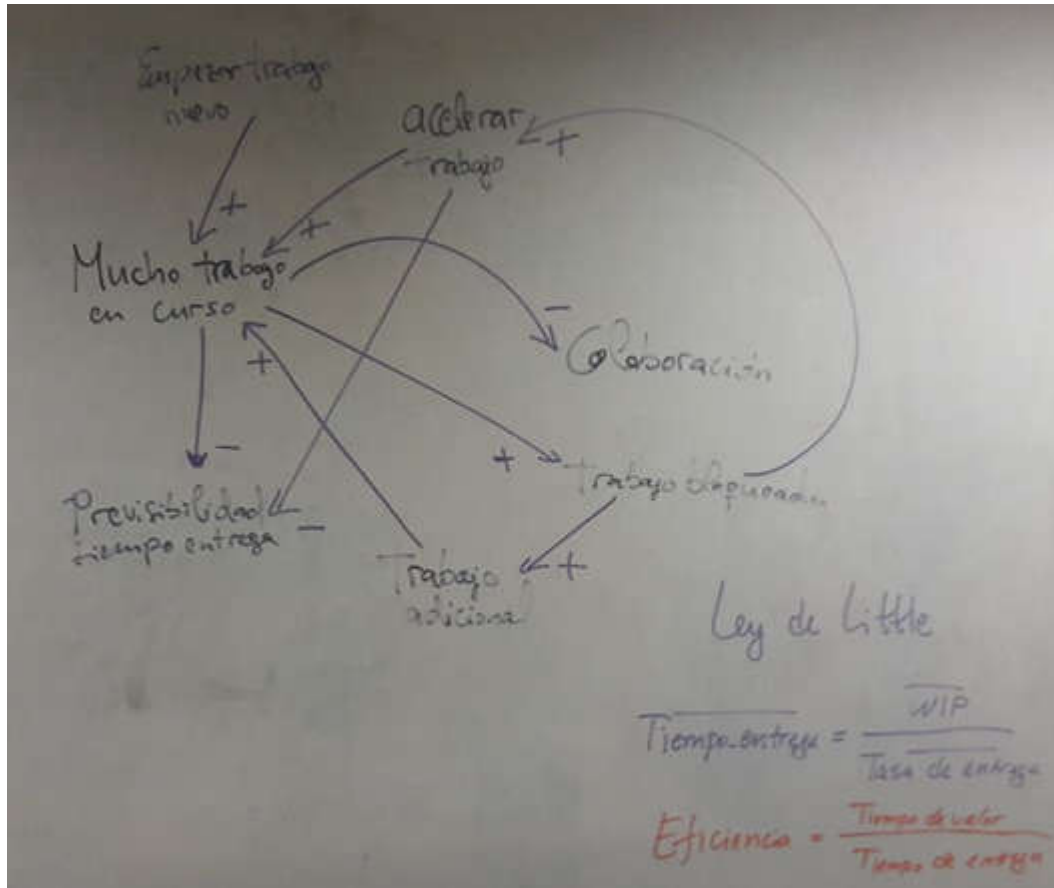 Empezar trabajo
nuevo
acelerar
trabajo
+
+
+
Mucho trabajo
en curso
-
Colaboración
+
-
+
Trabajo bloqueado
Previsibilidad
tiempo entrega
-
+
Trabajo
adicional
Ley de Little
Tiempo entrega = WIP
Tasa de entrega
Eficiencia = Tiempo de valor
Tiempo de entrega